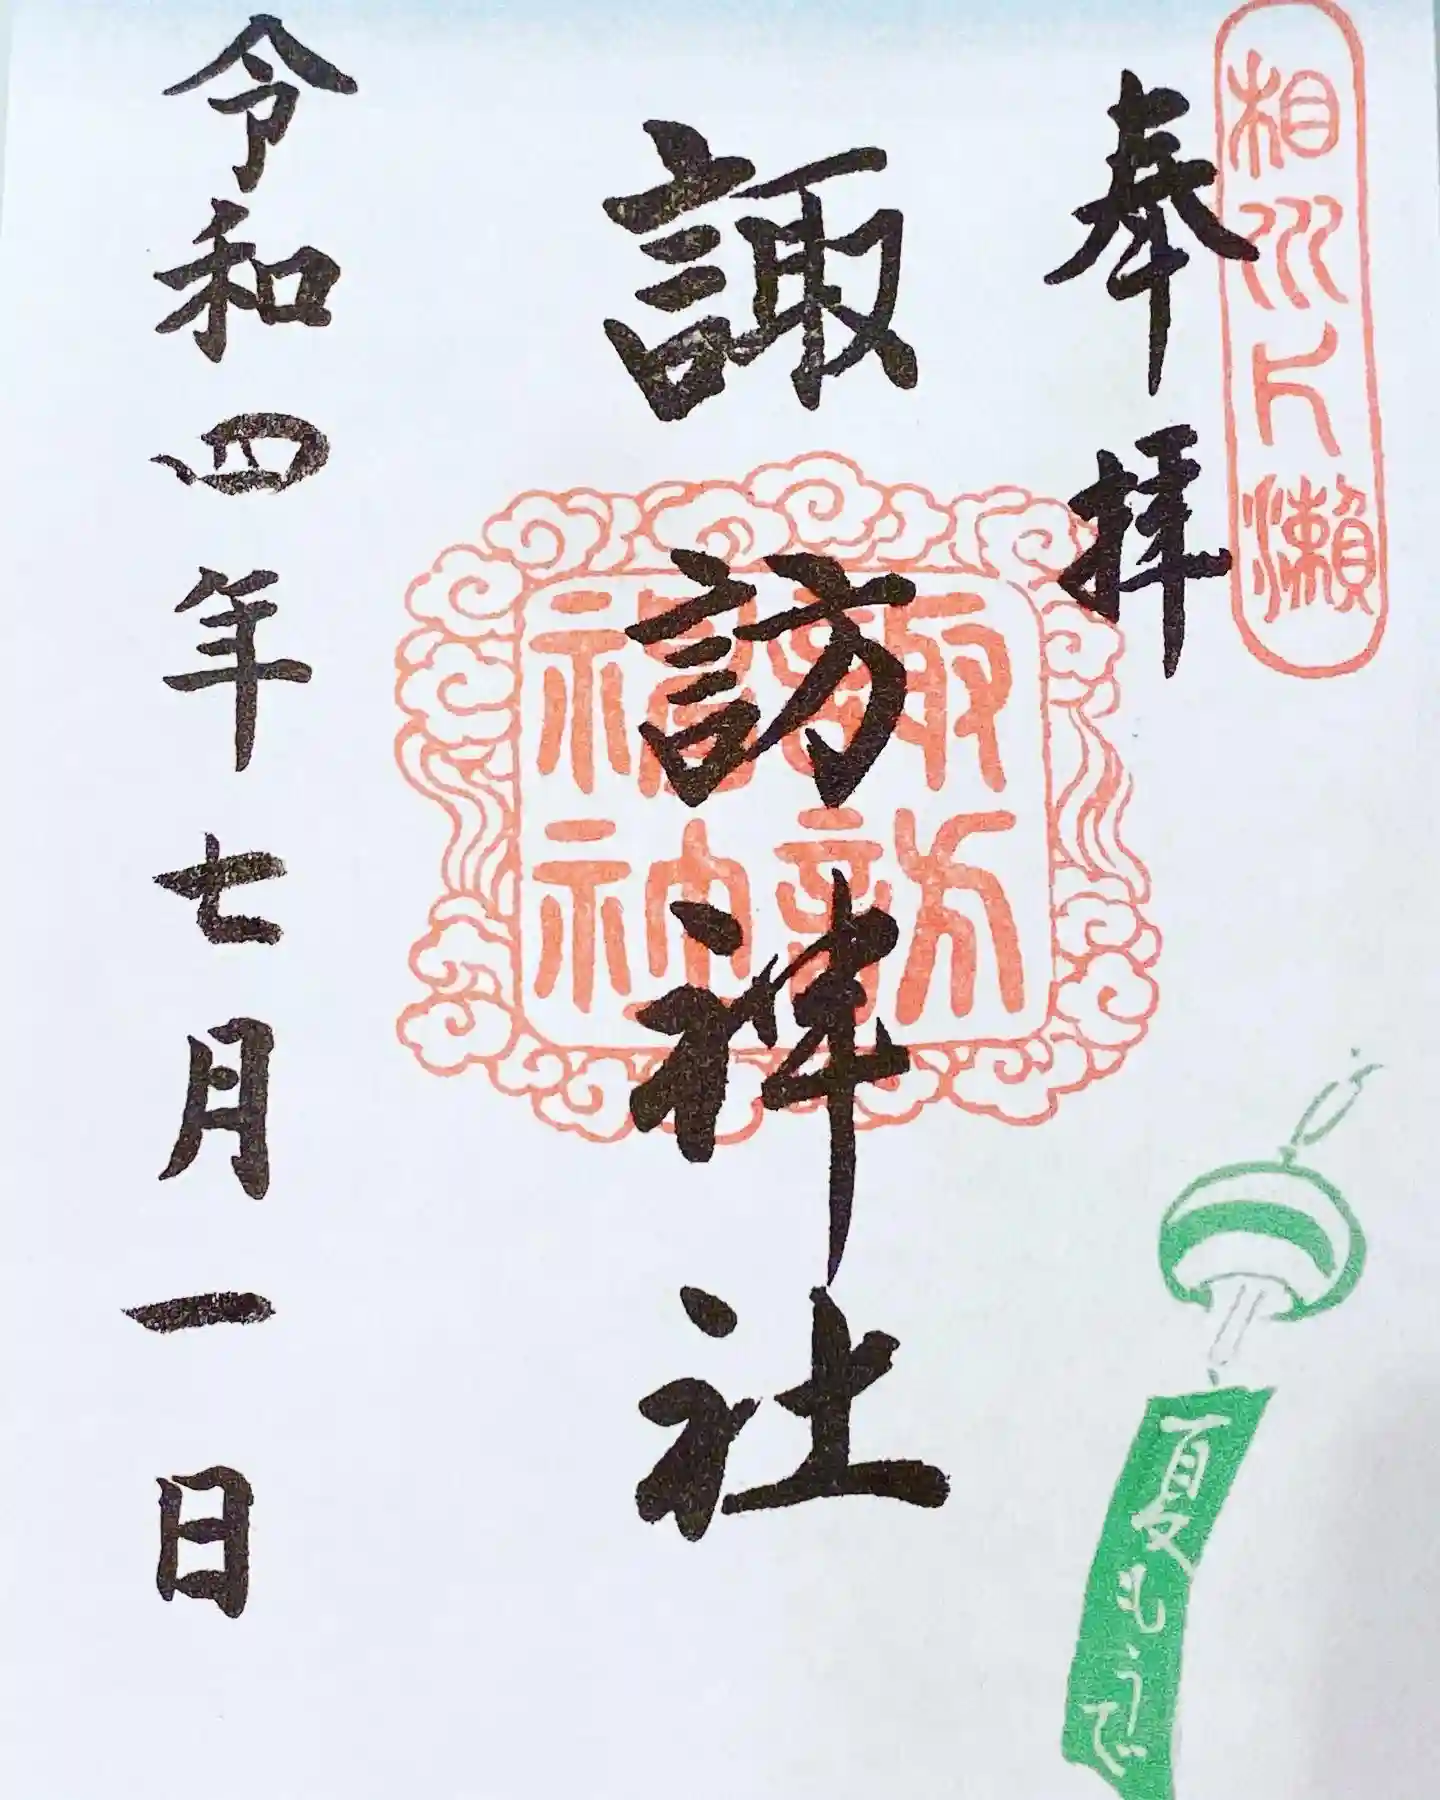 相州片瀬
奉拝
諏訪神社
諏訪
神
令和四年七月一日
夏もうで